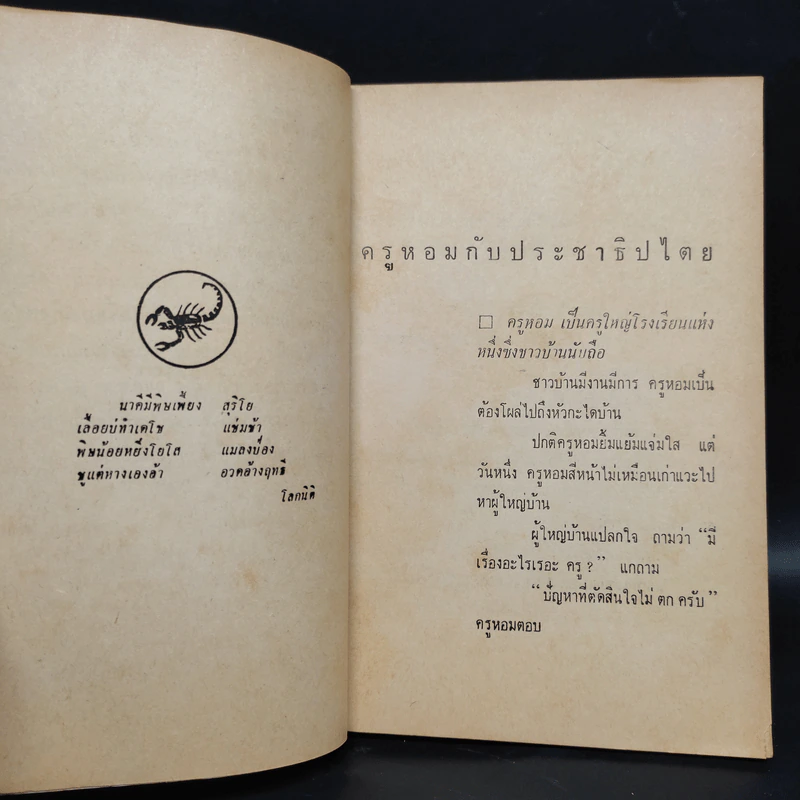 นาคีมีพิษเพี้ยง สุริโย
เลื้อยบ่ทำเดโช แช่มช้า
พิษน้อยหยิ่งโยโส แมลงป่อง
ชูแต่หางเองอ้า อวดอ้างฤทธี
โลกนิติ
ครูหอมกับประชาธิปไตย
□ ครูหอม เป็นครูใหญ่โรงเรียนแห่ง
หนึ่งซึ่งชาวบ้านนับถือ
ชาวบ้านมีงานมีการ ครูหอมเป็น
ต้องโผล่ไปถึงหัวกะไดบ้าน
ปกติครูหอมยิ้มแย้มแจ่มใส แต่
วันหนึ่ง ครูหอมสีหน้าไม่เหมือนเก่าแวะไป
หาผู้ใหญ่บ้าน
ผู้ใหญ่บ้านแปลกใจ ถามว่า “มี
เรื่องอะไรเรอะ ครู ?” แกถาม
“ปัญหาที่ตัดสินใจไม่ ตก ครับ”
ครูหอมตอบ